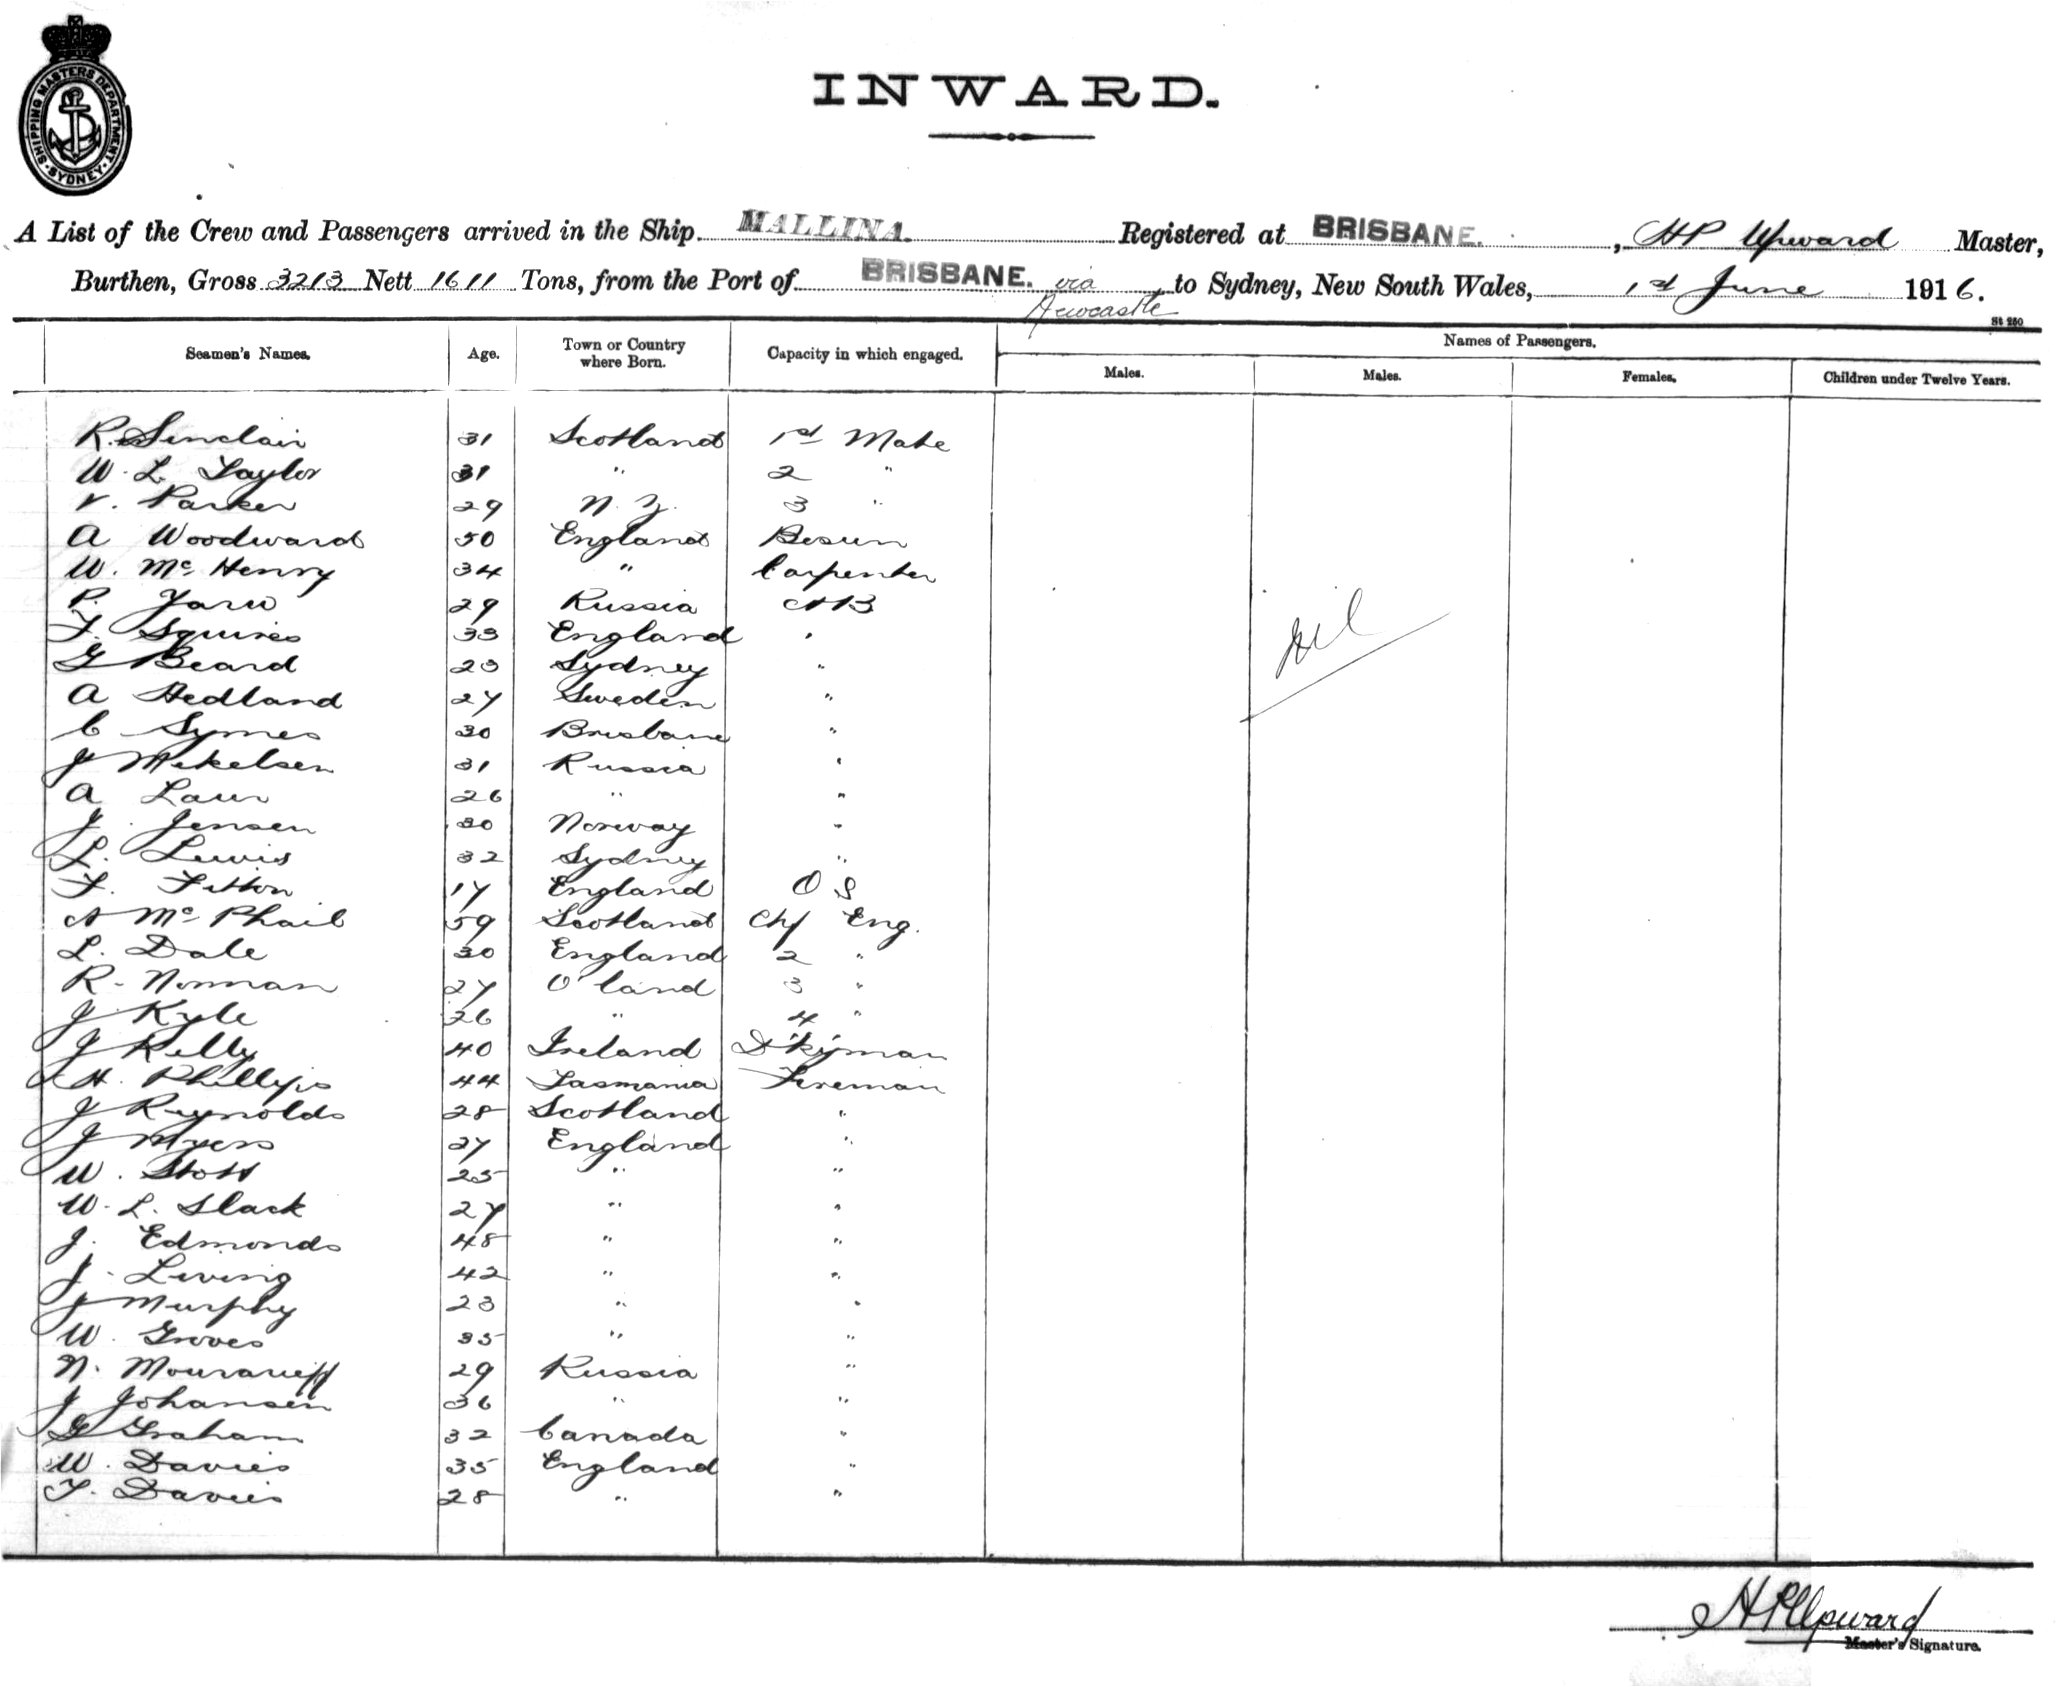 SHIPPING MASTERS DEPARTMENT. SYDNEY
INWARD.
A List of the Crew and Passengers arrived in the Ship MALLINA. Registered at BRISBANE. , HP Upward Master,
Burthen, Gross 3213 Nett 1611 Tons, from the Port of BRISBANE. via Newcastle to Sydney, New South Wales, 1st June 1916.
St 260
Seamen's Names. Age. Town or Country where Born. Capacity in which engaged. Names of Passengers.
Males. Males. Females. Children under Twelve Years.
R. Sinclair 31 Scotland 1st Mate
W. L. Taylor 31 " 2 "
V. Parker 29 N.Z. 3 "
A Woodward 50 England Bosun
W. Mc Henry 34 " Carpenter
P. 29 Russia AB
F. Squires 33 England "
G Beard 23 Sydney "
A Hedland 27 Sweden "
C Symes 30 Brisbane "
J Mekelsen 31 Russia "
A Laur 26 " "
J. Jensen 30 Norway "
L. Lewis 32 Sydney "
F. Fitton 17 England O S
A Mc Phail 59 Scotland Chf Eng.
L. Dale 30 England 2 "
R. Norman 27 Q'land 3 "
J Kyle 26 " 4 "
J Kelly 40 Ireland D'kyman
H. Phillips 44 Tasmania Fireman
J Reynolds 28 Scotland "
J Myers 27 England "
W. Stott 25 " "
W. L. Slack 27 " "
J. Edmonds 48 " "
J. Leving 42 " "
J Murphy 23 " "
W. Groves 35 " "
N. Mouravieff 29 Russia "
J Johansen 36 " "
G Graham 32 Canada "
W. Davies 35 England "
T. Davies 28 " "
Nil
HP Upward
Master's Signature.